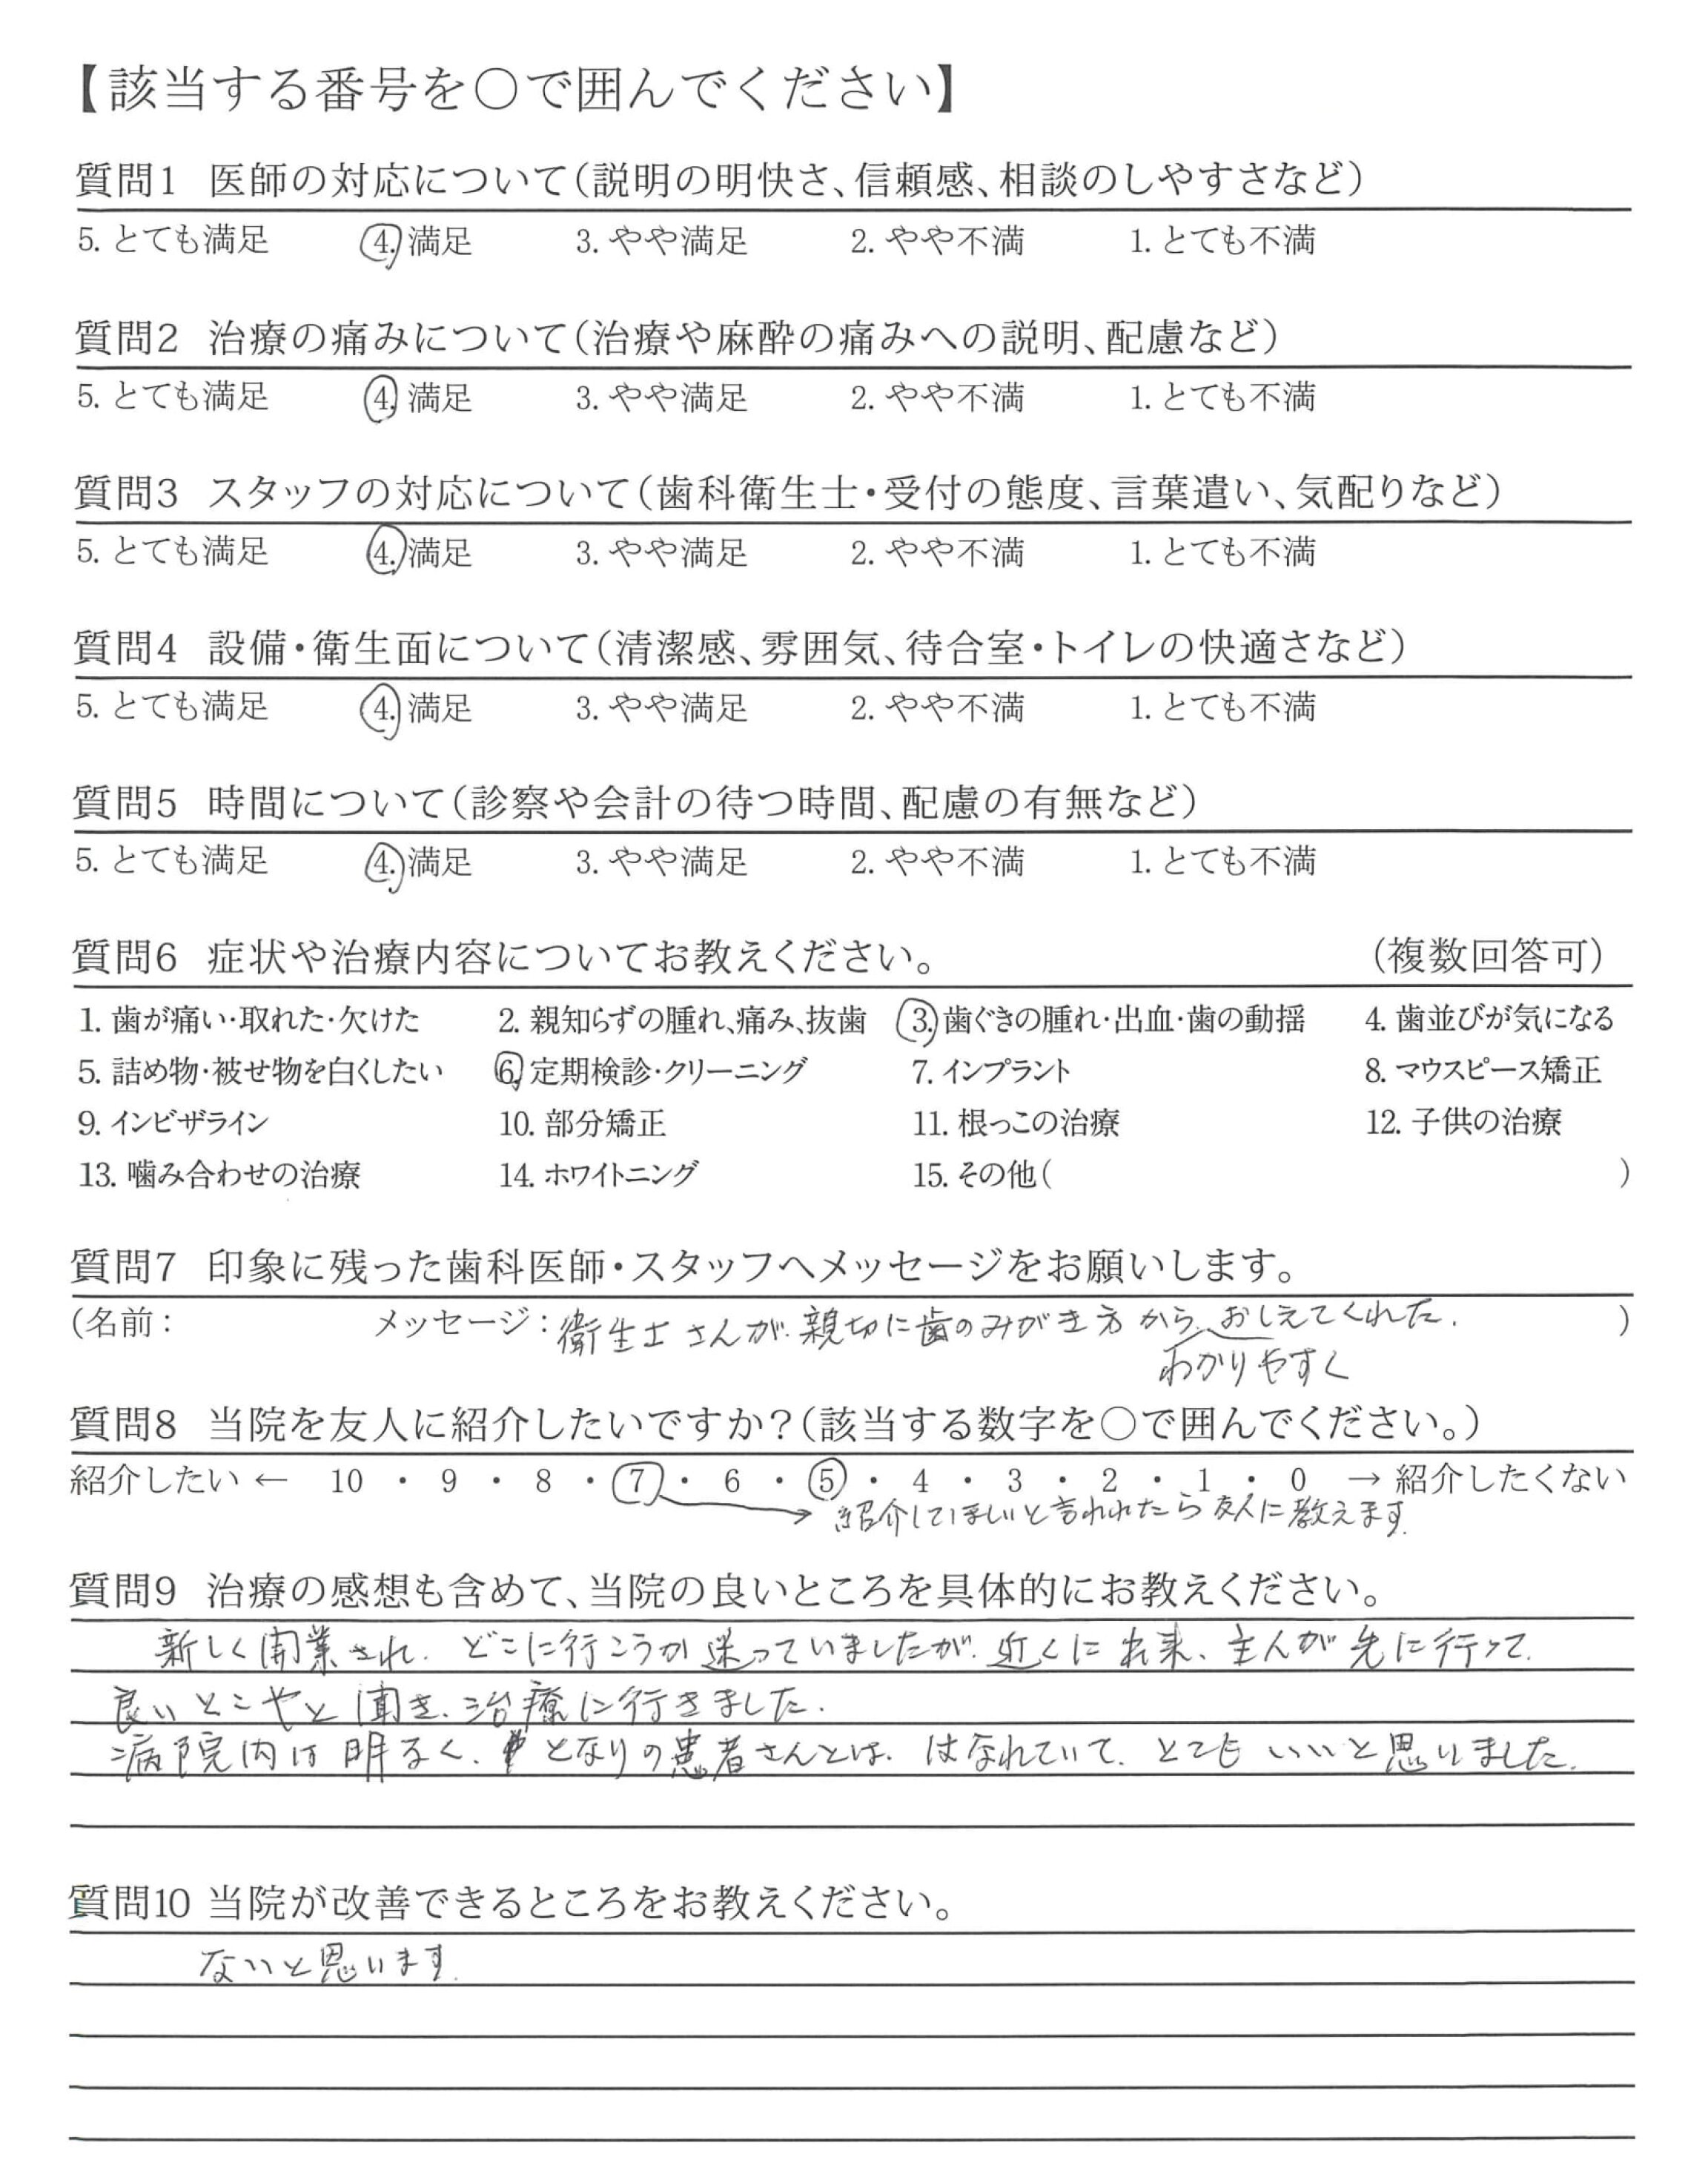 【該当する番号を〇で囲んでください】
質問1 医師の対応について(説明の明快さ、信頼感、相談のしやすさなど)
5. とても満足 4. 満足 3. やや満足 2. やや不満 1. とても不満
質問2 治療の痛みについて(治療や麻酔の痛みへの説明、配慮など)
5. とても満足 4. 満足 3. やや満足 2. やや不満 1. とても不満
質問3 スタッフの対応について(歯科衛生士・受付の態度、言葉遣い、気配りなど)
5. とても満足 4. 満足 3. やや満足 2. やや不満 1. とても不満
質問4 設備・衛生面について(清潔感、雰囲気、待合室・トイレの快適さなど)
5. とても満足 4. 満足 3. やや満足 2. やや不満 1. とても不満
質問5 時間について(診察や会計の待つ時間、配慮の有無など)
5. とても満足 4. 満足 3. やや満足 2. やや不満 1. とても不満
質問6 症状や治療内容についてお教えください。 (複数回答可)
1. 歯が痛い・取れた・欠けた 2. 親知らずの腫れ、痛み、抜歯 3. 歯ぐきの腫れ・出血・歯の動揺 4. 歯並びが気になる
5. 詰め物・被せ物を白くしたい 6. 定期検診・クリーニング 7. インプラント 8. マウスピース矯正
9. インビザライン 10. 部分矯正 11. 根っこの治療 12. 子供の治療
13. 噛み合わせの治療 14. ホワイトニング 15. その他( )
質問7 印象に残った歯科医師・スタッフへメッセージをお願いします。
(名前: メッセージ: 衛生士さんが、親切に歯のみがき方からおしえてくれた。 )
わかりやすく
質問8 当院を友人に紹介したいですか?(該当する数字を〇で囲んでください。)
紹介したい ← 10 ・ 9 ・ 8 ・ 7 ・ 6 ・ 5 ・ 4 ・ 3 ・ 2 ・ 1 ・ 0 → 紹介したくない
→ 紹介してほしいと言われたら友人に教えます。
質問9 治療の感想も含めて、当院の良いところを具体的にお教えください。
新しく開業され、どこに行こうか迷っていましたが、近くに出来、主人が先に行って、
良いとこやと聞き、治療に行きました。
病院内は明るく、となりの患者さんとは、はなれていて、とてもいいと思いました。
質問10 当院が改善できるところをお教えください。
ないと思います。